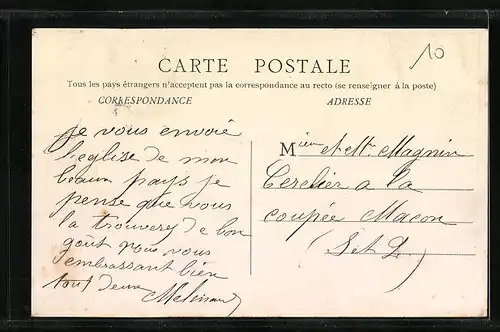 10
CARTE POSTALE
Tous les pays étrangers n'acceptent pas la correspondance au recto (se renseigner à la poste)
CORRESPONDANCE
ADRESSE
Je vous envoie
l'eglise de mon
beaux pays je
pense que vous
la trouverez de bon
goût nous vous
embrassant bien
tout deux
Mieur et Me Magnin
Cerclier a la
coupée Macon
(S et L)